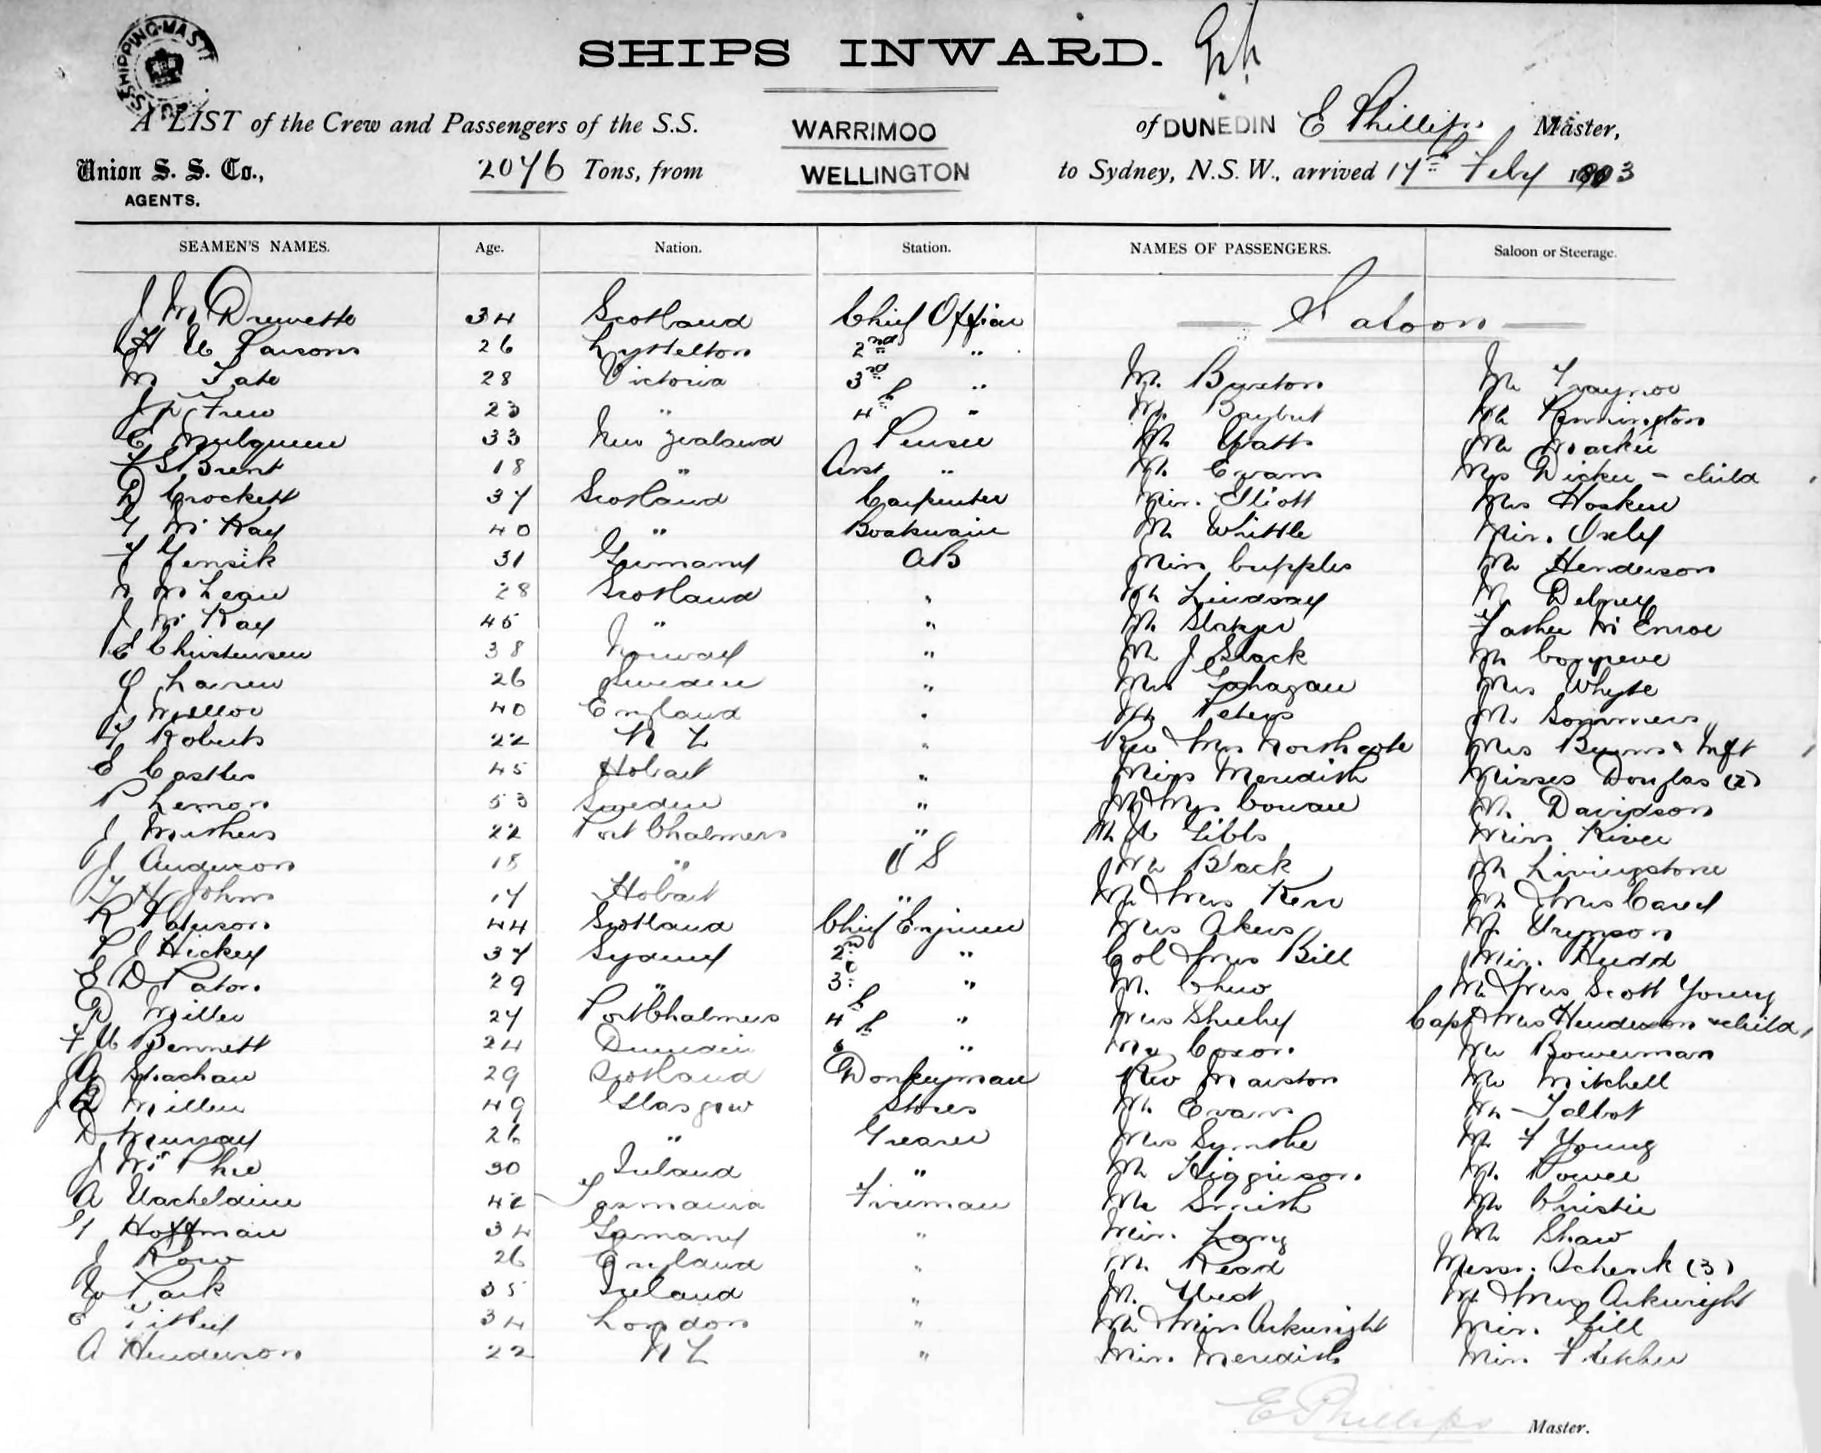 SHIPPING MAST
SHIPS INWARD.
A LIST of the Crew and Passengers of the S.S. WARRIMOO of DUNEDIN E Phillips Master,
Union S. S. Co., AGENTS. 2076 Tons, from WELLINGTON to Sydney, N.S.W., arrived 17th Feby 1903
SEAMEN'S NAMES. Age. Nation. Station. NAMES OF PASSENGERS. Saloon or Steerage.
J M Drewette 34 Scotland Chief Officer Saloon
H U Parsons 26 Lyttelton 2nd "
M Tate 28 Victoria 3rd " Mr. Buxton Mr Traynor
Frew 23 " 4th " Mr. Baybut Mr Pennington
E Mulqueen 33 New Zealand Purser Mr Watt Mr Mackie
F G Brent 18 " Asst " Mr. Evans Mrs Dickie - child
D Crockett 37 Scotland Carpenter Miss Elliott Mrs Hosken
G McKay 40 " Boatswain Mr Whittle Miss Oxley
F Jensik 31 Germany AB Miss Cupples Mr Henderson
McLean 28 Scotland " Mr Lindsay Mr
J McKay 45 " " Mr Father McEnroe
E Christensen 38 Norway " Mr J Slack Mr Congreve
O Larsen 26 Sweden " Mrs Gahagan Mrs Whyte
J Mellor 40 England " Mr Peters Mr Sommers
F Roberts 22 N Z " Rev & Mrs Northcote Mrs Burns & Inft
E Castles 45 Hobart " Miss Meredith Misses Douglas (2)
P Lemon 53 Sweden " Mr & Mrs Cowan Mr Davidson
J Mathers 22 Port Chalmers " Mr A Gibbs Miss River
J Anderson 18 " O S Mr Black Mr Livingstone
T H Johns 17 Hobart " Mr & Mrs Kerr Mr & Mrs Carey
R Paterson 44 Scotland Chief Engineer Mrs Akers Mr
P J Hickey 37 Sydney 2nd " Col & Mrs Bill Miss Hudd
E D Paton 29 " 3rd " Mr. Chew Mr & Mrs Scott Young
D Miller 27 Port Chalmers 4th " Mrs Sheehy Capt & Mrs Henderson & child
F U Bennett 24 Dunedin 6 " Mr Coxon Mr Bowerman
A Strachan 29 Scotland Donkeyman Rev Marston Mr Mitchell
J B Millen 49 Glasgow Stores Mr. Evans Mr Talbot
D Murray 26 " Greaser Mrs Smythe Mr. F Young
J McPhee 30 Ireland " Mr Higginson Mr. Power
A Vacheldine 42 Tasmania Fireman Mr Smith Mr Christie
G Hoffman 34 Germany " Miss Lang Mr Shaw
J Row 26 England " Mr. Read Messrs. Schenk (3)
W Park 35 Ireland " Mr. West Mr & Mrs Arkwright
E 34 London " Mr & Miss Arkwright Miss Gill
A Henderson 22 N Z " Miss Meredith Miss Fletcher
E Phillips Master.